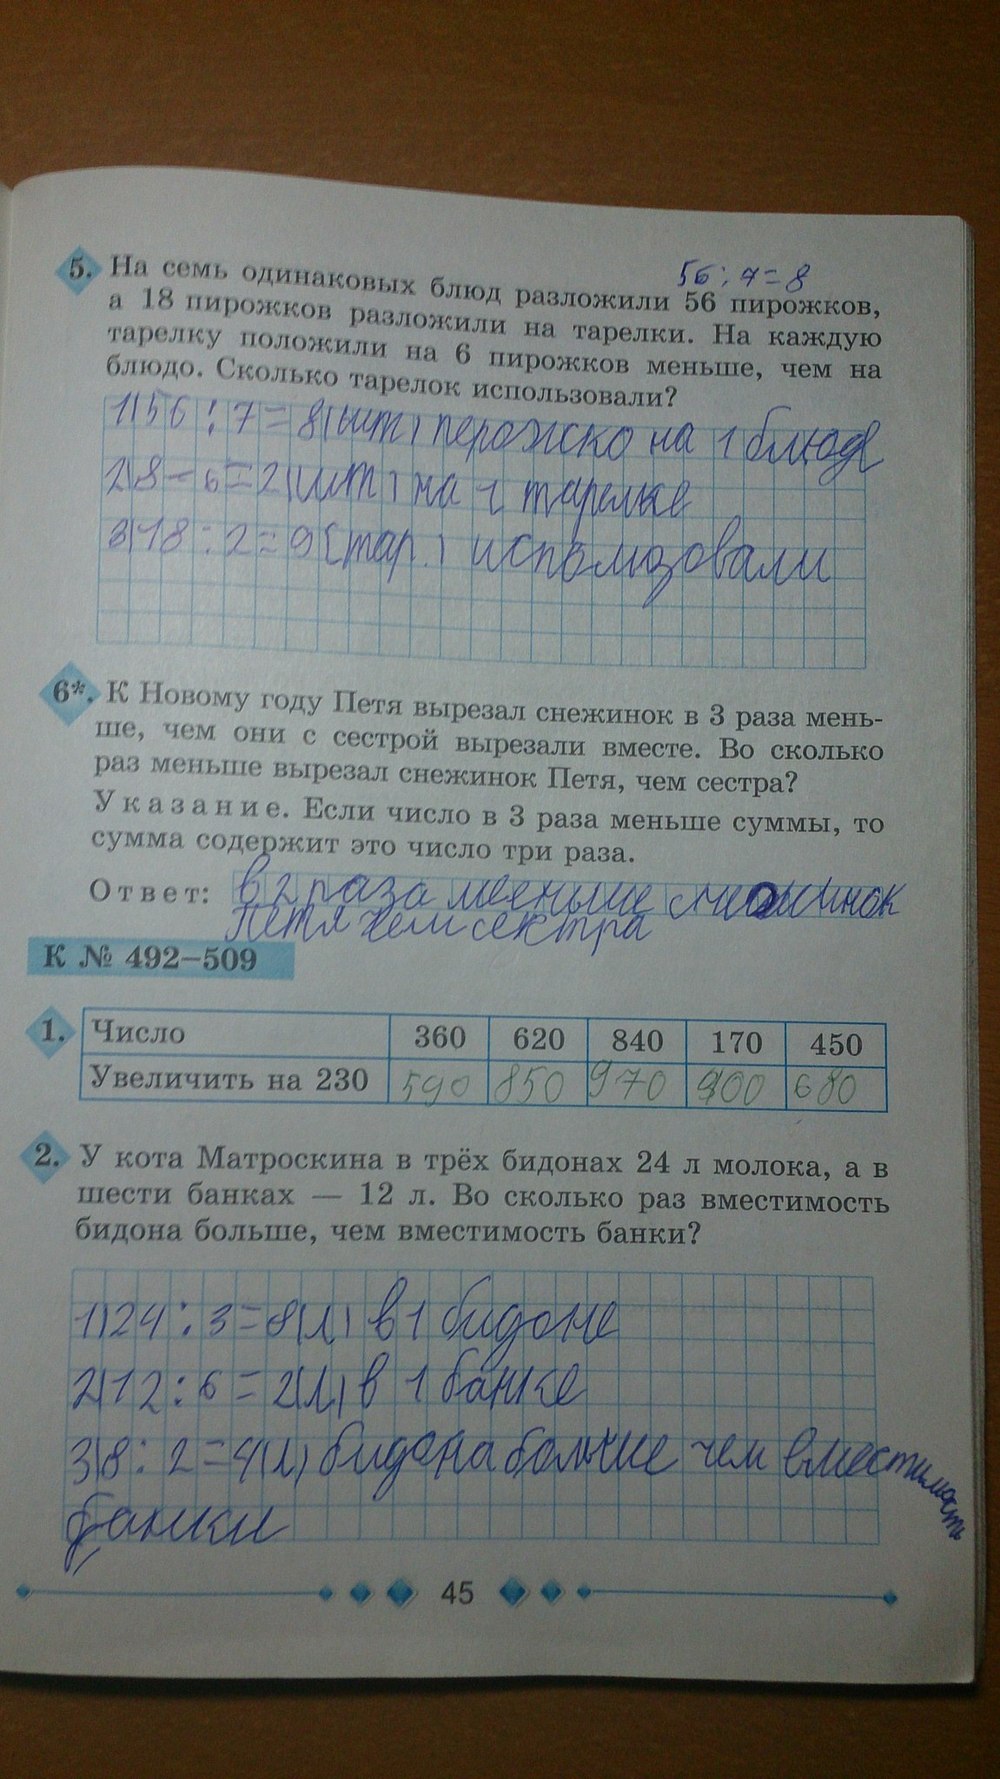 56:7=8
5. На семь одинаковых блюд разложили 56 пирожков,
а 18 пирожков разложили на тарелки. На каждую
тарелку положили на 6 пирожков меньше, чем на
блюдо. Сколько тарелок использовали?
1)56:7=8(шт) перожско на 1 блюде
2)8-6=2(шт) на 1 тарелке
3)18:2=9(тар.) использовали
6*. К Новому году Петя вырезал снежинок в 3 раза мень-
ше, чем они с сестрой вырезали вместе. Во сколько
раз меньше вырезал снежинок Петя, чем сестра?
Указание. Если число в 3 раза меньше суммы, то
сумма содержит это число три раза.
Ответ: в 2 раза меньше снежинок
Петя чем сектра
К № 492–509
1. Число 360 620 840 170 450
Увеличить на 230 590 850 970 400 680
2. У кота Матроскина в трёх бидонах 24 л молока, а в
шести банках — 12 л. Во сколько раз вместимость
бидона больше, чем вместимость банки?
1)24:3=8(л) в 1 бидоне
2)12:6=2(л) в 1 банке
3)8:2=4(л) бидона больше чем вместимость
банки
45